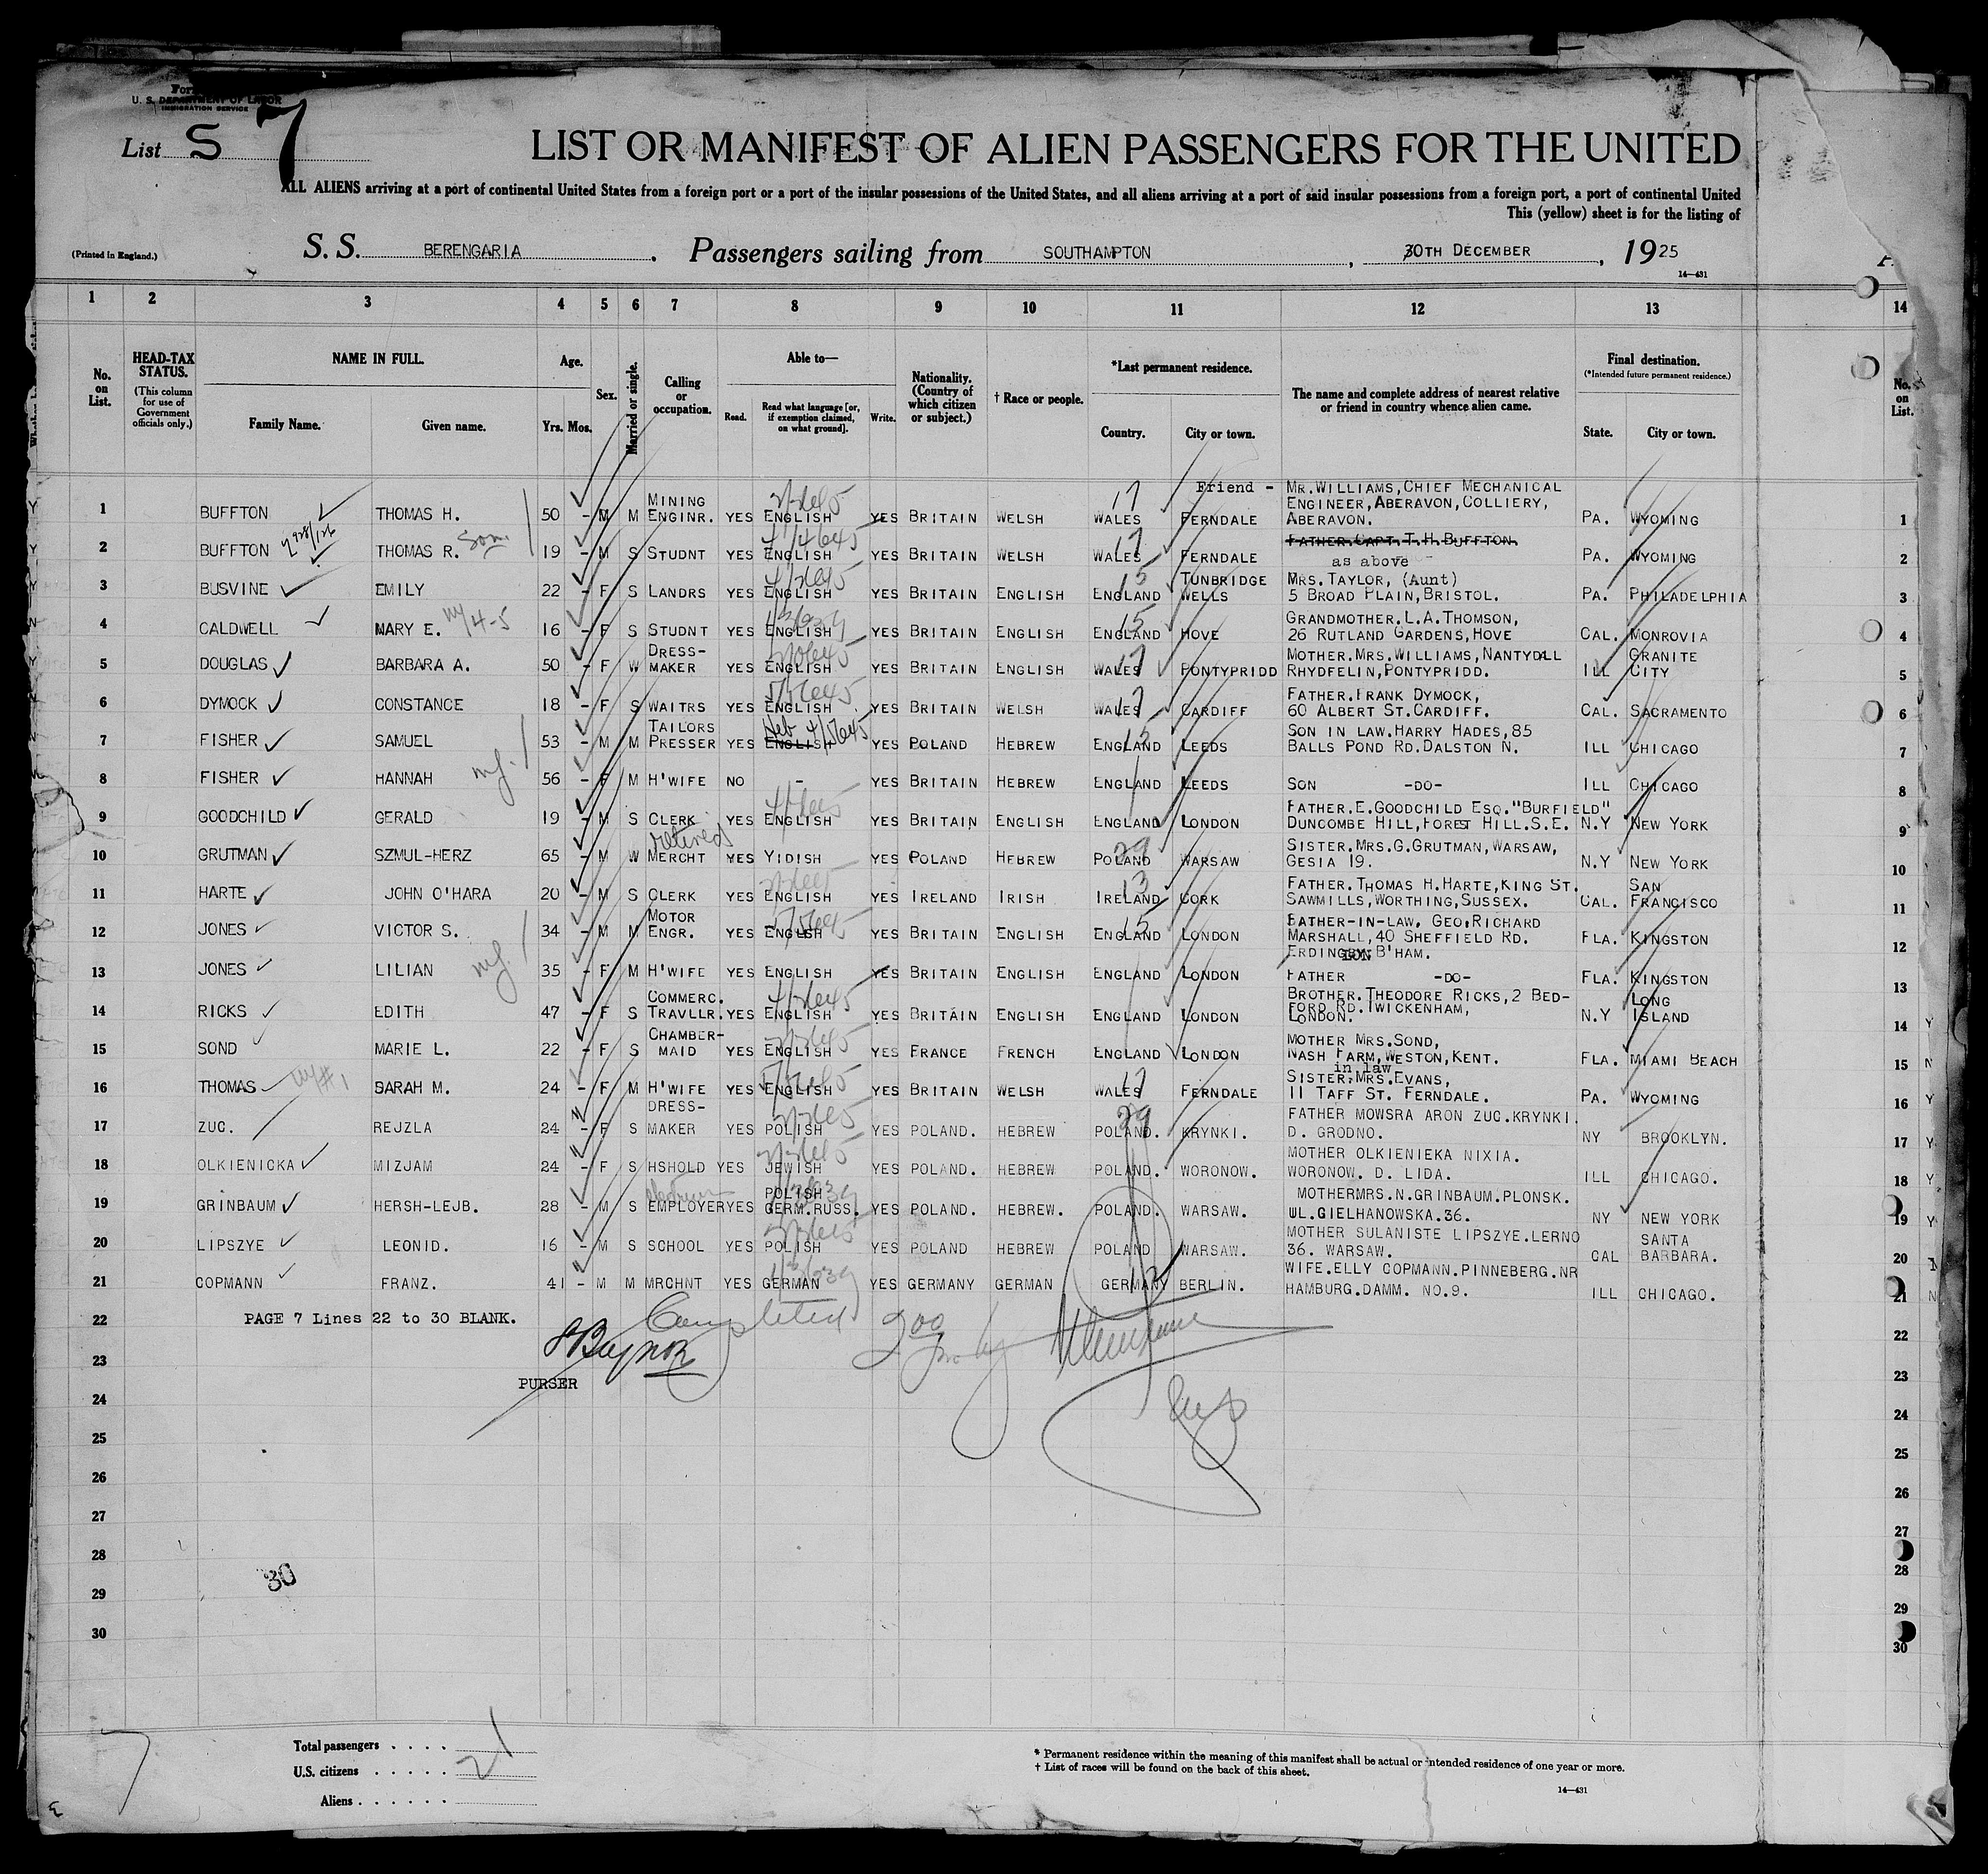 Form
U. S. DEPARTMENT OF LABOR
IMMIGRATION SERVICE
List S 7
LIST OR MANIFEST OF ALIEN PASSENGERS FOR THE UNITED
ALL ALIENS arriving at a port of continental United States from a foreign port or a port of the insular possessions of the United States, and all aliens arriving at a port of said insular possessions from a foreign port, a port of continental United
This (yellow) sheet is for the listing of
(Printed in England.) S. S. BERENGARIA . Passengers sailing from SOUTHAMPTON , 30TH DECEMBER , 1925
14—431
1 2 3 4 5 6 7 8 9 10 11 12 13 14
No. on List. HEAD-TAX STATUS. (This column for use of Government officials only.) NAME IN FULL. Family Name. Given name. Age. Yrs. Mos. Sex. Married or single. Calling or occupation. Able to— Read. Read what language [or, if exemption claimed, on what ground]. Write. Nationality. (Country of which citizen or subject.) † Race or people. *Last permanent residence. Country. City or town. The name and complete address of nearest relative or friend in country whence alien came. Final destination. (*Intended future permanent residence.) State. City or town. No. on List.
1 BUFFTON THOMAS H. 50 - M M MINING ENGINR. YES ENGLISH YES BRITAIN WELSH WALES 17 FERNDALE Friend - MR.WILLIAMS,CHIEF MECHANICAL ENGINEER,ABERAVON,COLLIERY, ABERAVON. PA. WYOMING 1
2 BUFFTON THOMAS R. Son 19 - M S STUDNT YES ENGLISH YES BRITAIN WELSH WALES 17 FERNDALE FATHER.CAPT.T.H.BUFFTON. as above PA. WYOMING 2
3 BUSVINE EMILY 22 - F S LANDRS YES ENGLISH YES BRITAIN ENGLISH ENGLAND 15 TUNBRIDGE WELLS MRS.TAYLOR, (Aunt) 5 BROAD PLAIN,BRISTOL. PA. PHILADELPHIA 3
4 CALDWELL MARY E. 16 - F S STUDNT YES ENGLISH YES BRITAIN ENGLISH ENGLAND 15 HOVE GRANDMOTHER.L.A.THOMSON, 26 RUTLAND GARDENS,HOVE CAL. MONROVIA 4
5 DOUGLAS BARBARA A. 50 - F W DRESS-MAKER YES ENGLISH YES BRITAIN ENGLISH WALES 17 PONTYPRIDD MOTHER.MRS.WILLIAMS,NANTYDALL RHYDFELIN,PONTYPRIDD. ILL GRANITE CITY 5
6 DYMOCK CONSTANCE 18 - F S WAITRS YES ENGLISH YES BRITAIN WELSH WALES 17 CARDIFF FATHER.FRANK DYMOCK, 60 ALBERT ST.CARDIFF. CAL. SACRAMENTO 6
7 FISHER SAMUEL 53 - M M TAILORS PRESSER YES ENGLISH Heb YES POLAND HEBREW ENGLAND 15 LEEDS SON IN LAW.HARRY HADES,85 BALLS POND RD.DALSTON N. ILL CHICAGO 7
8 FISHER HANNAH 56 - F M H'WIFE NO - YES BRITAIN HEBREW ENGLAND LEEDS SON -DO- ILL CHICAGO 8
9 GOODCHILD GERALD 19 - M S CLERK YES ENGLISH YES BRITAIN ENGLISH ENGLAND LONDON FATHER.E.GOODCHILD ESQ."BURFIELD" DUNCOMBE HILL,FOREST HILL.S.E. N.Y NEW YORK 9
10 GRUTMAN SZMUL-HERZ 65 - M W retired MERCHT YES YIDISH YES POLAND HEBREW POLAND 29 WARSAW SISTER.MRS.G.GRUTMAN,WARSAW, GESIA 19. N.Y NEW YORK 10
11 HARTE JOHN O'HARA 20 - M S CLERK YES ENGLISH YES IRELAND IRISH IRELAND 13 CORK FATHER.THOMAS H.HARTE,KING ST. SAWMILLS,WORTHING,SUSSEX. CAL. SAN FRANCISCO 11
12 JONES VICTOR S. 34 - M M MOTOR ENGR. YES ENGLSH YES BRITAIN ENGLISH ENGLAND 15 LONDON FATHER-IN-LAW, GEO.RICHARD MARSHALL,40 SHEFFIELD RD. ERDINGTON B'HAM. FLA. KINGSTON 12
13 JONES LILIAN 35 - F M H'WIFE YES ENGLISH YES BRITAIN ENGLISH ENGLAND LONDON FATHER -DO- FLA. KINGSTON 13
14 RICKS EDITH 47 - F S COMMERC. TRAVLLR. YES ENGLISH YES BRITAIN ENGLISH ENGLAND LONDON BROTHER.THEODORE RICKS,2 BED-FORD RD.TWICKENHAM, LONDON. N.Y LONG ISLAND 14
15 SOND MARIE L. 22 - F S CHAMBER-MAID YES ENGLISH YES FRANCE FRENCH ENGLAND LONDON MOTHER MRS.SOND, NASH FARM,WESTON,KENT. FLA. MIAMI BEACH 15
16 THOMAS SARAH M. 24 - F M H'WIFE YES ENGLISH YES BRITAIN WELSH WALES 17 FERNDALE in law SISTER.MRS.EVANS, 11 TAFF ST. FERNDALE. PA. WYOMING 16
17 ZUC. REJZLA 24 - F S DRESS-MAKER YES POLISH YES POLAND. HEBREW POLAND. 29 KRYNKI. FATHER MOWSRA ARON ZUC.KRYNKI. D. GRODNO. NY BROOKLYN. 17
18 OLKIENICKA MIZJAM 24 - F S HSHOLD YES JEWISH YES POLAND. HEBREW POLAND. WORONOW. MOTHER OLKIENIEKA NIXIA. WORONOW. D. LIDA. ILL CHICAGO. 18
19 GRINBAUM HERSH-LEJB. 28 - M S EMPLOYER YES POLISH GERM.RUSS. YES POLAND. HEBREW. POLAND. WARSAW. MOTHERMRS.N.GRINBAUM.PLONSK. UL.GIELHANOWSKA.36. NY NEW YORK 19
20 LIPSZYE LEONID. 16 - M S SCHOOL YES POLISH YES POLAND HEBREW POLAND WARSAW. MOTHER SULANISTE LIPSZYE.LERNO 36. WARSAW. CAL SANTA BARBARA. 20
21 COPMANN FRANZ. 41 - M M MRCHNT YES GERMAN YES GERMANY GERMAN GERMANY 12 BERLIN. WIFE.ELLY COPMANN.PINNEBERG.NR HAMBURG.DAMM. NO.9. ILL CHICAGO. 21
22 PAGE 7 Lines 22 to 30 BLANK. Completed 22
23 23
PURSER
24 24
25 25
26 26
27 27
28 28
30
29 29
30 30
Total passengers . . . . 21
U.S. citizens . . . . .
Aliens . . . . . .
7
* Permanent residence within the meaning of this manifest shall be actual or intended residence of one year or more.
† List of races will be found on the back of this sheet.
14—431